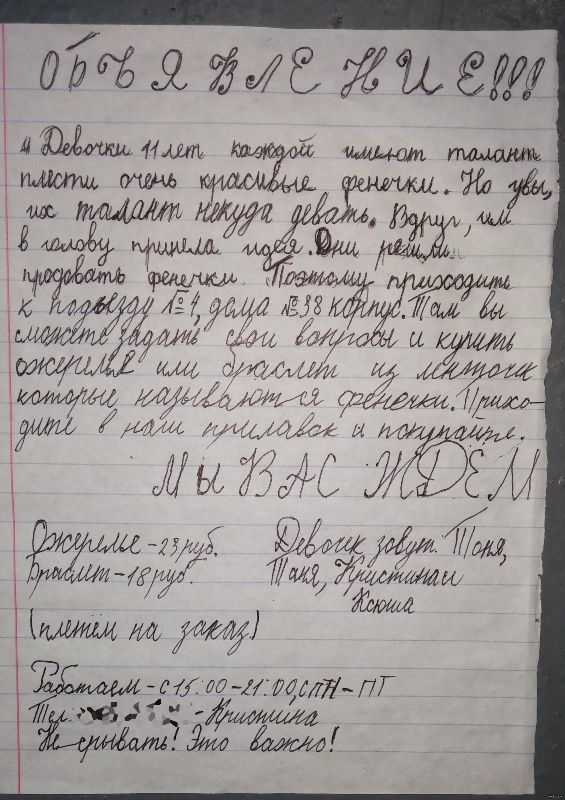 ОБЪЯВЛЕНИЕ!!!
"Девочки 11 лет каждой имеют талант
плести очень красивые фенечки. Но увы,
их талант некуда девать. Вдруг, им
в голову пришла идея. Они решили
продовать фенечки. Поэтому приходить
к подъезду №4, дома №38 корпус. Там вы
сможете задать свои вопросы и купить
ожерелье или браслет из ленточек
которые называются фенечки. Прихо-
дите в наш прилавок и покупайте.
МЫ ВАС ЖДЕМ
Ожерелье - 23 руб. Девочек зовут: Тоня,
Браслет - 18 руб. Таня, Кристина и
Ксюша
(плетём на заказ)
Работаем - с 15:00 - 21:00, с ПН - ПТ
Тел. - Кристина
Не срывать! Это важно!